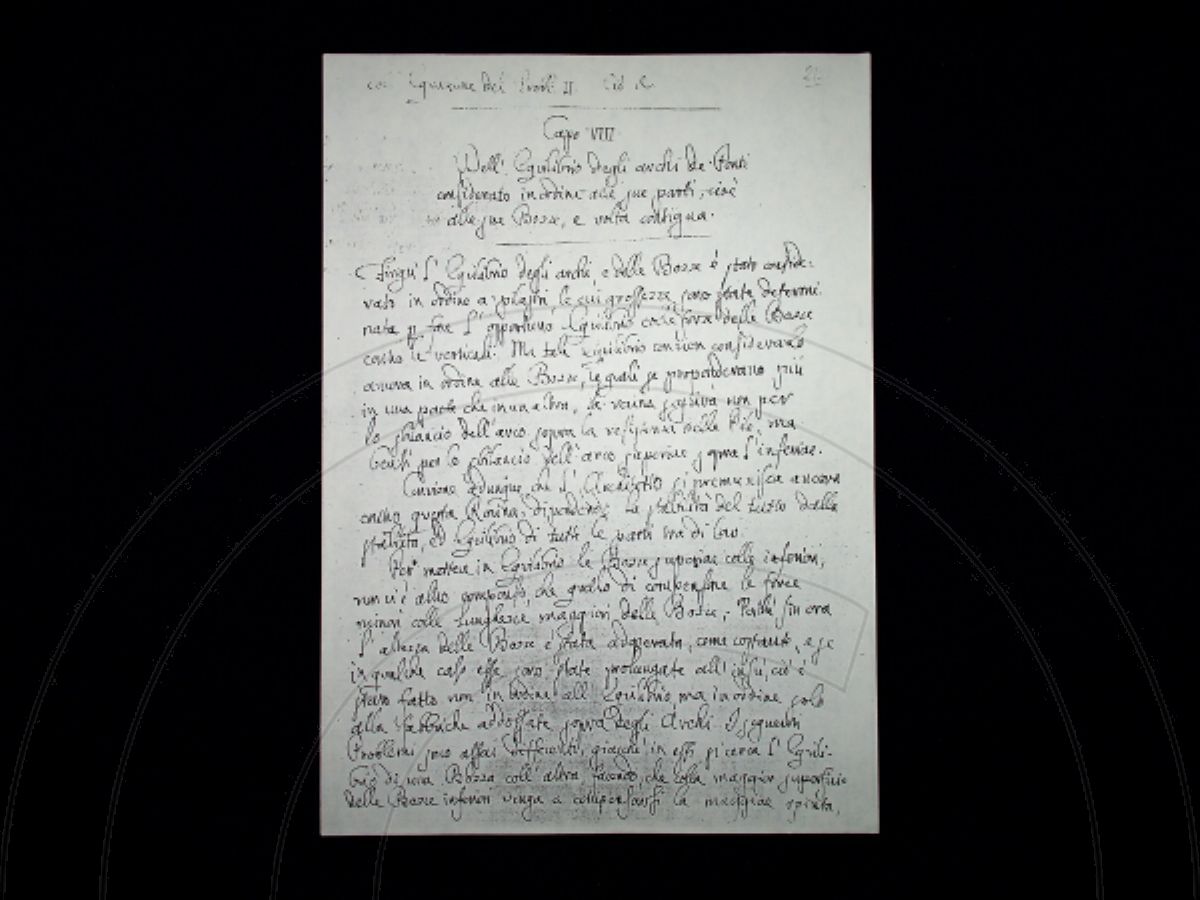 Equazione del Probl. II. Ciò &c.
Cappo VIII
Dell' Equilibrio degli archi de' Ponti
considerato in ordine alle sue parti, cioè
alle sue Bozze, e volta contigua.
Finqui l' Equilibrio degli archi e delle Bozze è stato conside-
rato in ordine a' pilastri le cui grossezze sono state determi-
nata p. fare l' opportuno Equilibrio colle forze delle Bozze
contro le verticali. Ma tale Equilibrio convien considerarlo
ancora in ordine alle Bozze, le quali se preponderano più
in una parte che in un altra, la rovina seguirà non per
lo sbilancio dell' arco sopra la resistenza delle Piè, ma
bensì per lo sbilancio dell' arco superiore sopra l' inferiore.
Conviene adunque che l' Architetto si premunisca ancora
contro questa Rovina, dipendendo la stabilità del tutto dalla
stabilità, ed Equilibrio di tutte le parti tra di loro.
Per mettere in Equilibrio le Bozze superiori colle inferiori,
non vi è altro compenso, che quello di compensare le forze
minori colle lunghezze maggiori delle Bozze; Perchè fin ora
l' altezza delle Bozze è stata adoperata, come costante, e se
in qualche caso esse sono state prolungate all' insù, ciò è
stato fatto non in ordine all' Equilibrio, ma in ordine solo
alla Fabbriche addossate sopra degli Archi. I seguenti
Problemi sono assai differenti, giacchè in essi si cerca l' Equili-
brio di una Bozza coll' altra, facendo, che colla maggior superficie
delle Bozze inferiori venga a compensarsi la maggiore spinta,